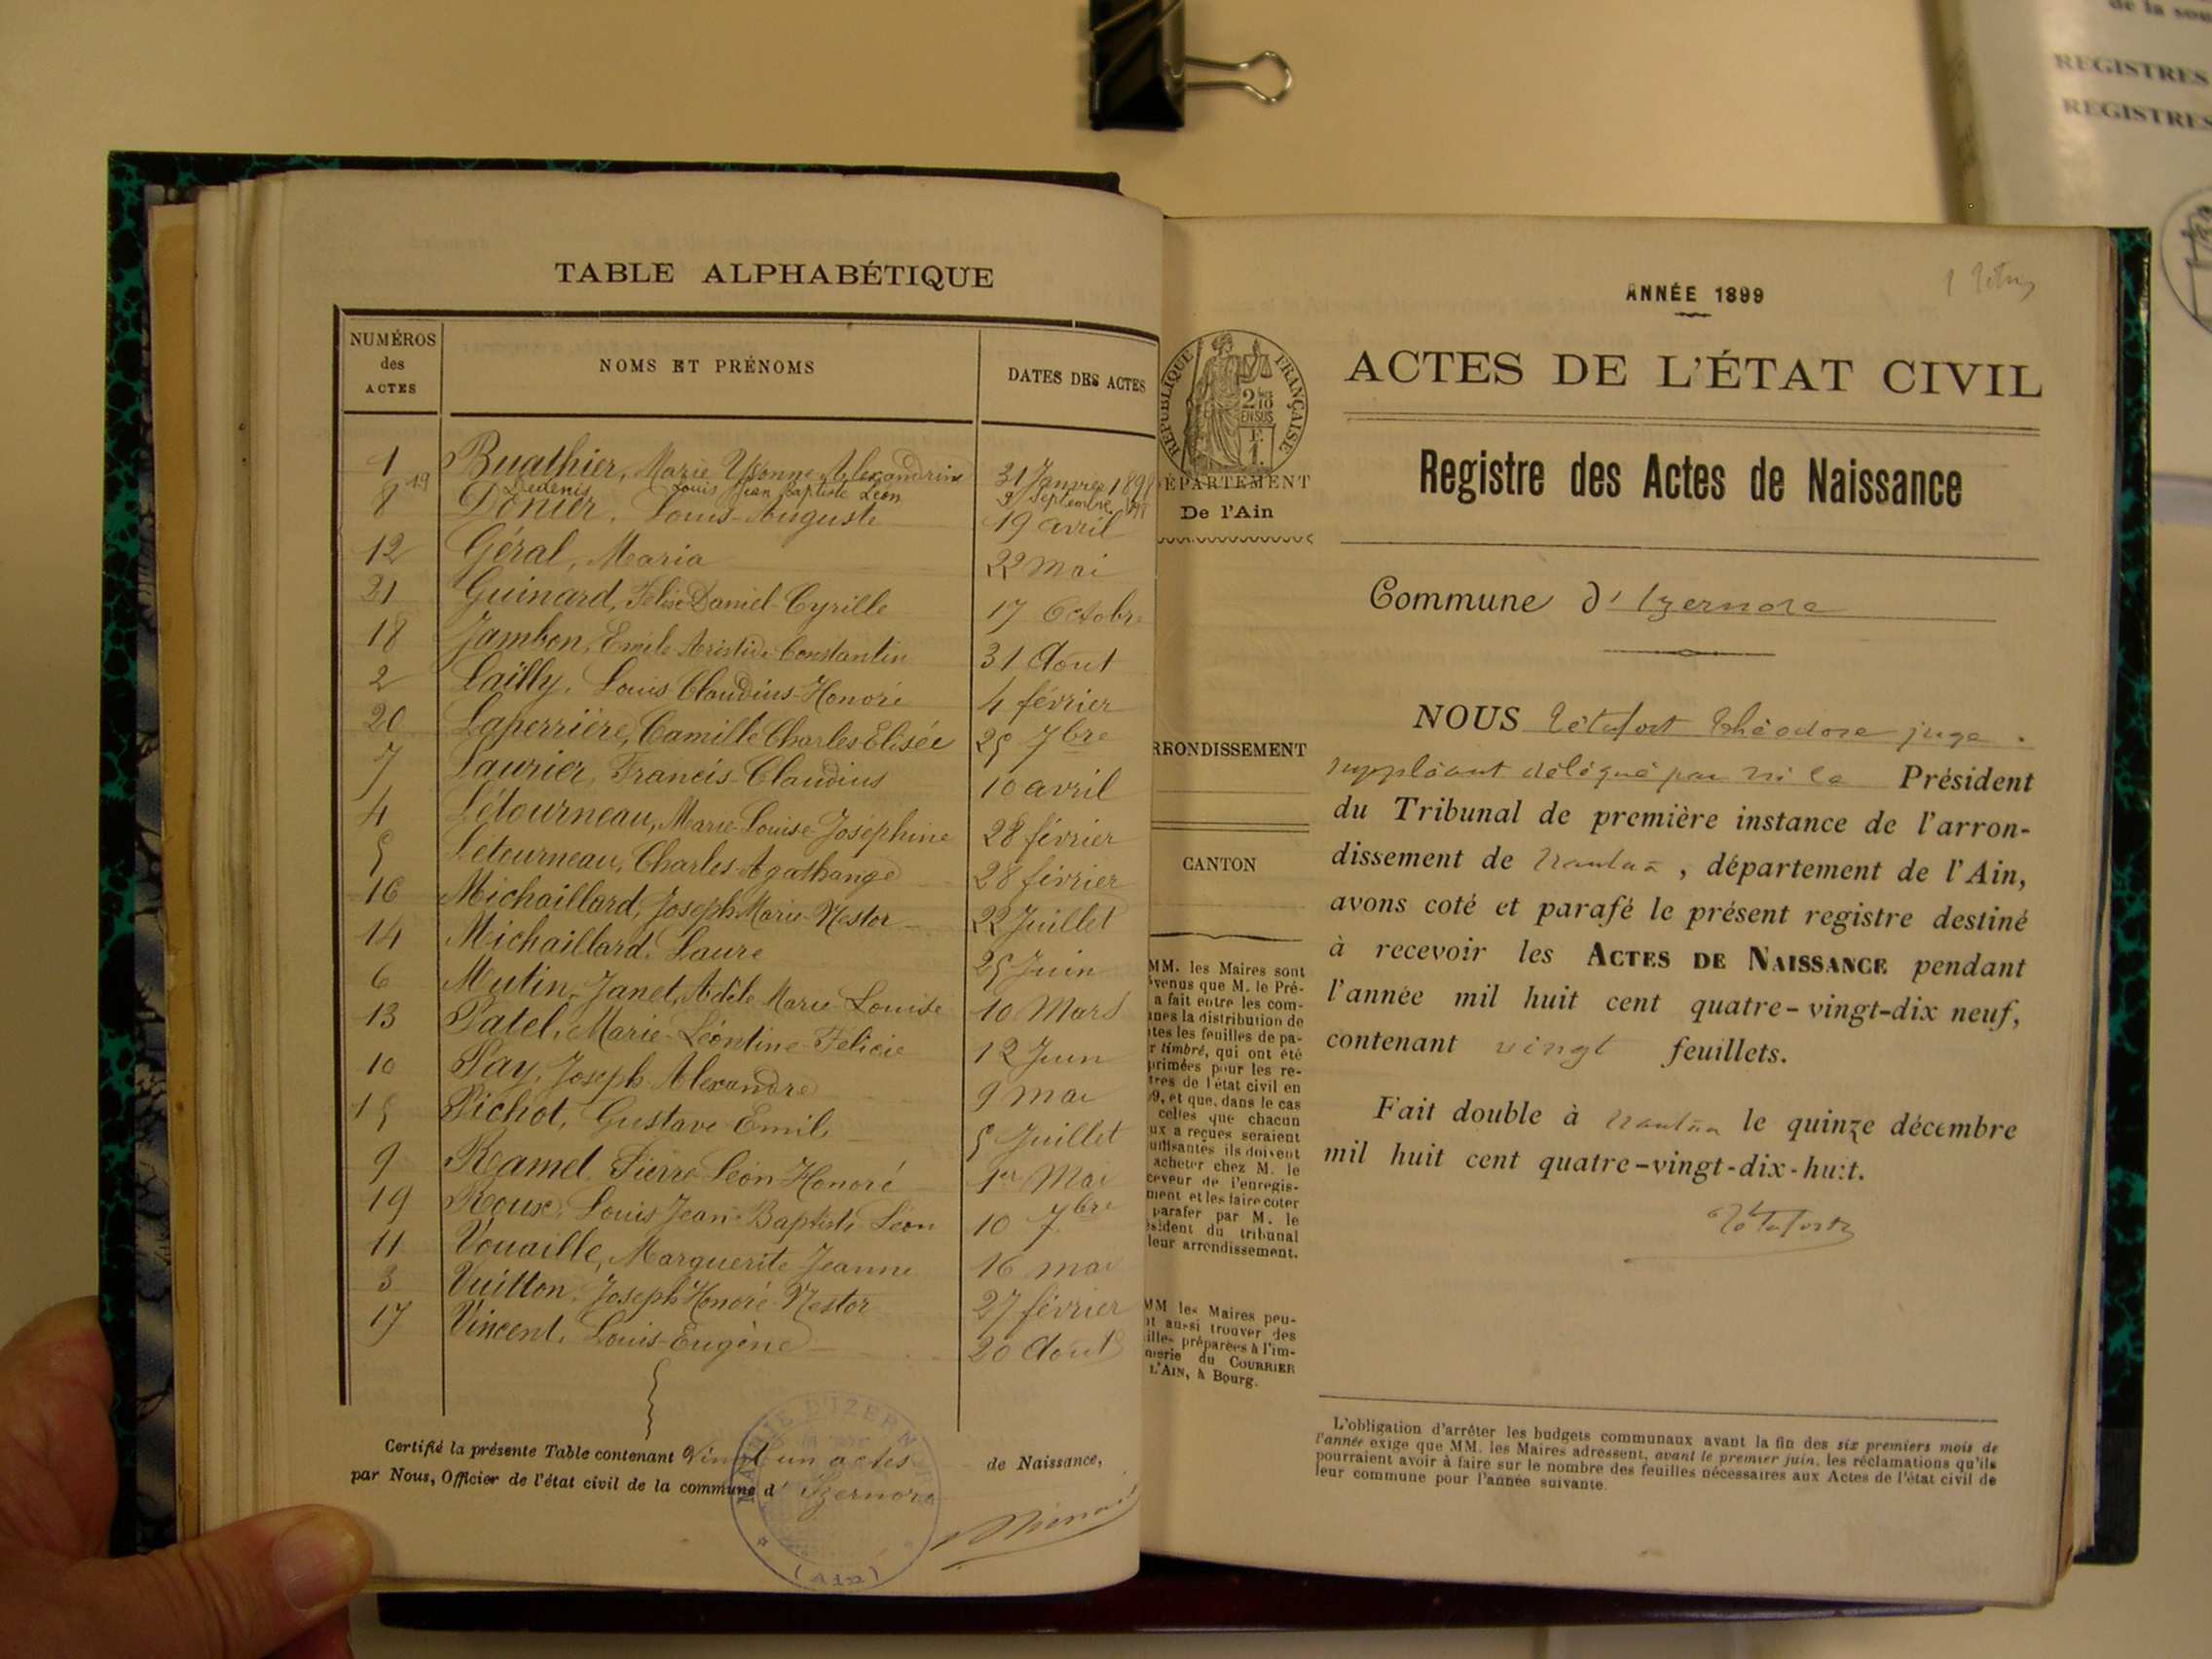 de la sou
REGISTRES
REGISTRES
TABLE ALPHABÉTIQUE
NUMÉROS des ACTES
NOMS ET PRÉNOMS
DATES DES ACTES
1 Buathier, Marie Yvonne Alexandrine 31 Janvier 1898
19 Dedenis Louis Jean Baptiste Léon 9 Septembre 1898
8 Donier, Louis-Auguste 19 avril
12 Géral, Maria 22 mai
21 Guinard, Félix Daniel-Cyrille 17 Octobre
18 Jambon, Emile Aristide Constantin 31 Aout
2 Lailly, Louis Claudius-Honoré 4 février
20 Laperrière, Camille Charles Elisée 25 7bre
7 Laurier, Francis-Claudius 10 avril
4 Létourneau, Marie-Louise-Joséphine 28 février
5 Létourneau, Charles-Agathange 28 février
16 Michaillard, Joseph-Marie-Nestor 22 Juillet
14 Michaillard, Laure 25 Juin
6 Mutin, Janet, Adèle Marie-Louise 10 Mars
13 Patel, Marie-Léontine-Félicie 12 Juin
10 Pay, Joseph Alexandre 9 mai
15 Pichot, Gustave Emile 5 Juillet
9 Ramel, Pierre-Léon-Honoré 1er Mai
19 Roux, Louis Jean-Baptiste Léon 10 7bre
11 Vouaille, Marguerite Jeanne 16 mai
3 Vuitton, Joseph Honoré-Nestor 27 février
17 Vincent, Louis-Eugène 20 Aout
Certifié la présente Table contenant Vingt un actes de Naissance,
par Nous, Officier de l'état civil de la commune d' Izernore
MAIRIE D'IZERNORE
(AIN)
ANNÉE 1899
ACTES DE L'ÉTAT CIVIL
RÉPUBLIQUE FRANÇAISE
2/10
EN SUS
F.
1.
Registre des Actes de Naissance
ÉPARTEMENT
De l'Ain
Commune d'Izernore
RRONDISSEMENT
CANTON
NOUS Létafort Théodore juge
suppléant délégué par Mr le Président
du Tribunal de première instance de l'arron-
dissement de Nantua, département de l'Ain,
avons coté et parafé le présent registre destiné
à recevoir les ACTES DE NAISSANCE pendant
l'année mil huit cent quatre-vingt-dix neuf,
contenant vingt feuillets.
Fait double à Nantua le quinze décembre
mil huit cent quatre-vingt-dix-huit.
MM. les Maires sont
venus que M. le Pré-
a fait entre les com-
nes la distribution de
tes les feuilles de pa-
r timbré, qui ont été
primées pour les re-
tres de l'état civil en
9, et que, dans le cas
celles que chacun
ux a reçues seraient
uffisantes ils doivent
acheter chez M. le
ceveur de l'enregis-
ment et les faire coter
parafer par M. le
sident du tribunal
leur arrondissement.
MM les Maires peu-
nt aussi trouver des
illes préparées à l'im-
merie du COURRIER
L'AIN, à Bourg.
L'obligation d'arrêter les budgets communaux avant la fin des six premiers mois de
l'année exige que MM. les Maires adressent, avant le premier juin, les réclamations qu'ils
pourraient avoir à faire sur le nombre des feuilles nécessaires aux Actes de l'état civil de
leur commune pour l'année suivante.